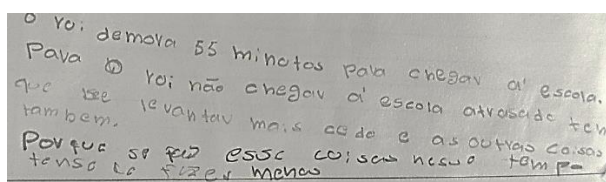 o roi demora 55 minotos para chegar a' escola.
Para o roi não chegar a' escola atrasado ten
que se levantar mais cedo e as outras coisas
tambem.
Porque se fez esse coisas nesuo tempo
tenso fizer menas